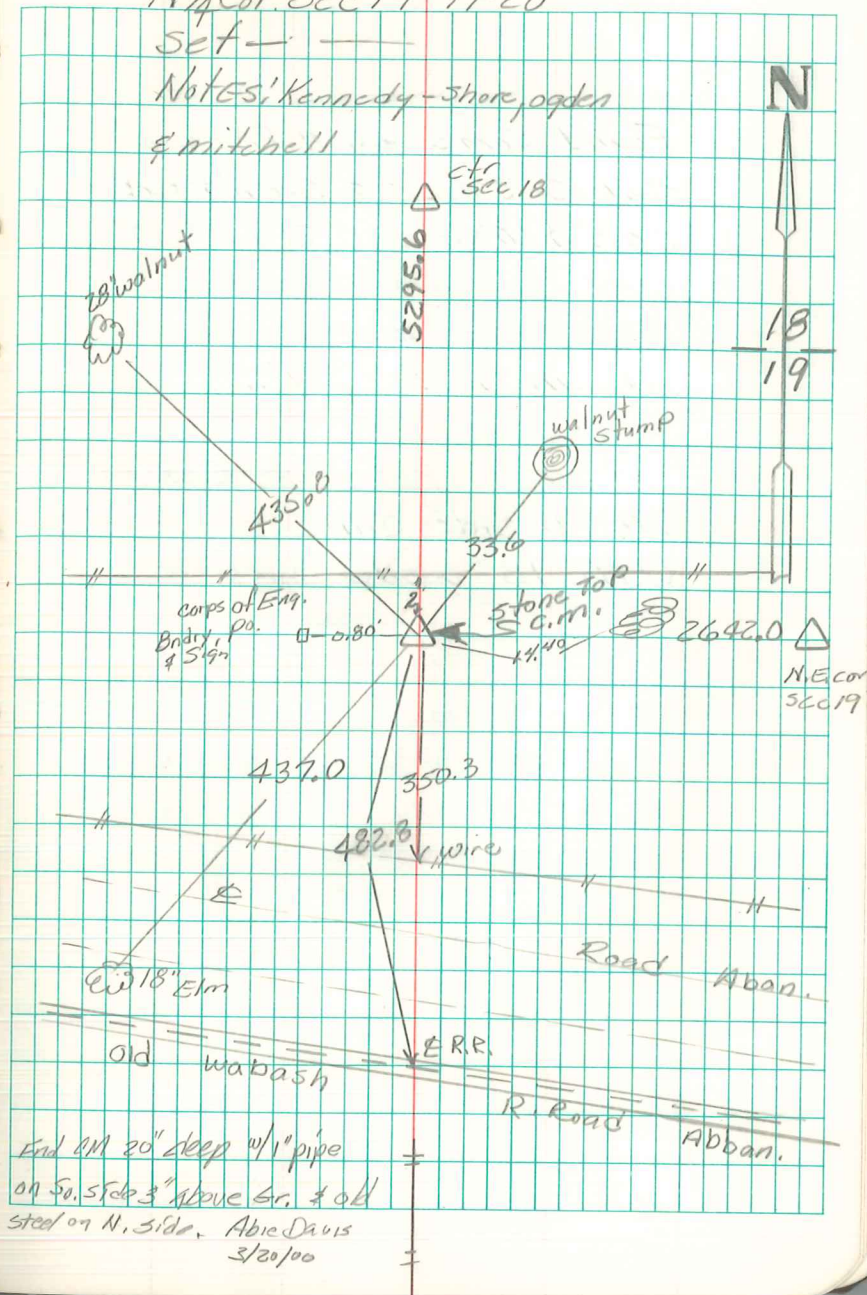 N 1/4 Cor. Sec 19
Set
Notes: Kennedy - Shore, ogden
& mitchell
N
ctr
Sec 18
5295.6
28" walnut
18
19
walnut
stump
435.0
33.6
2'
corps of Eng.
Bndry. Po.
& Sign
0.80'
Stone Top
C.M.
14.40
2642.0
N.E. cor
Sec 19
437.0
350.3
482.8
wire
℄
Road Aban.
18" Elm
℄ R.R.
Old Wabash R. Road Abban.
End CM 20" deep w/1" pipe
on So. side 3" above Gr. & old
steel on N. side. Abie Davis
3/20/00